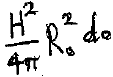 H²/4π R₀² do